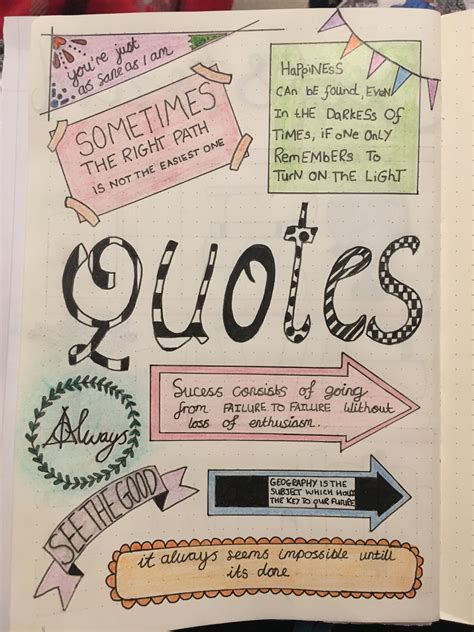 you're just
as sane as I am
SOMETIMES
THE RIGHT PATH
IS NOT THE EASIEST ONE
HAPPINESS
CAN BE FOUND, EVEN
IN THE DARKESS OF
TIMES, IF ONE ONLY
REMEMBERS TO
TURN ON THE LIGHT
Quotes
Sucess consists of going
from FAILURE TO FAILURE without
loss of enthusiasm.
Always
SEE THE GOOD
GEOGRAPHY IS THE
SUBJECT WHICH HOLDS
THE KEY TO OUR FUTURE
it always seems impossible untill
its done